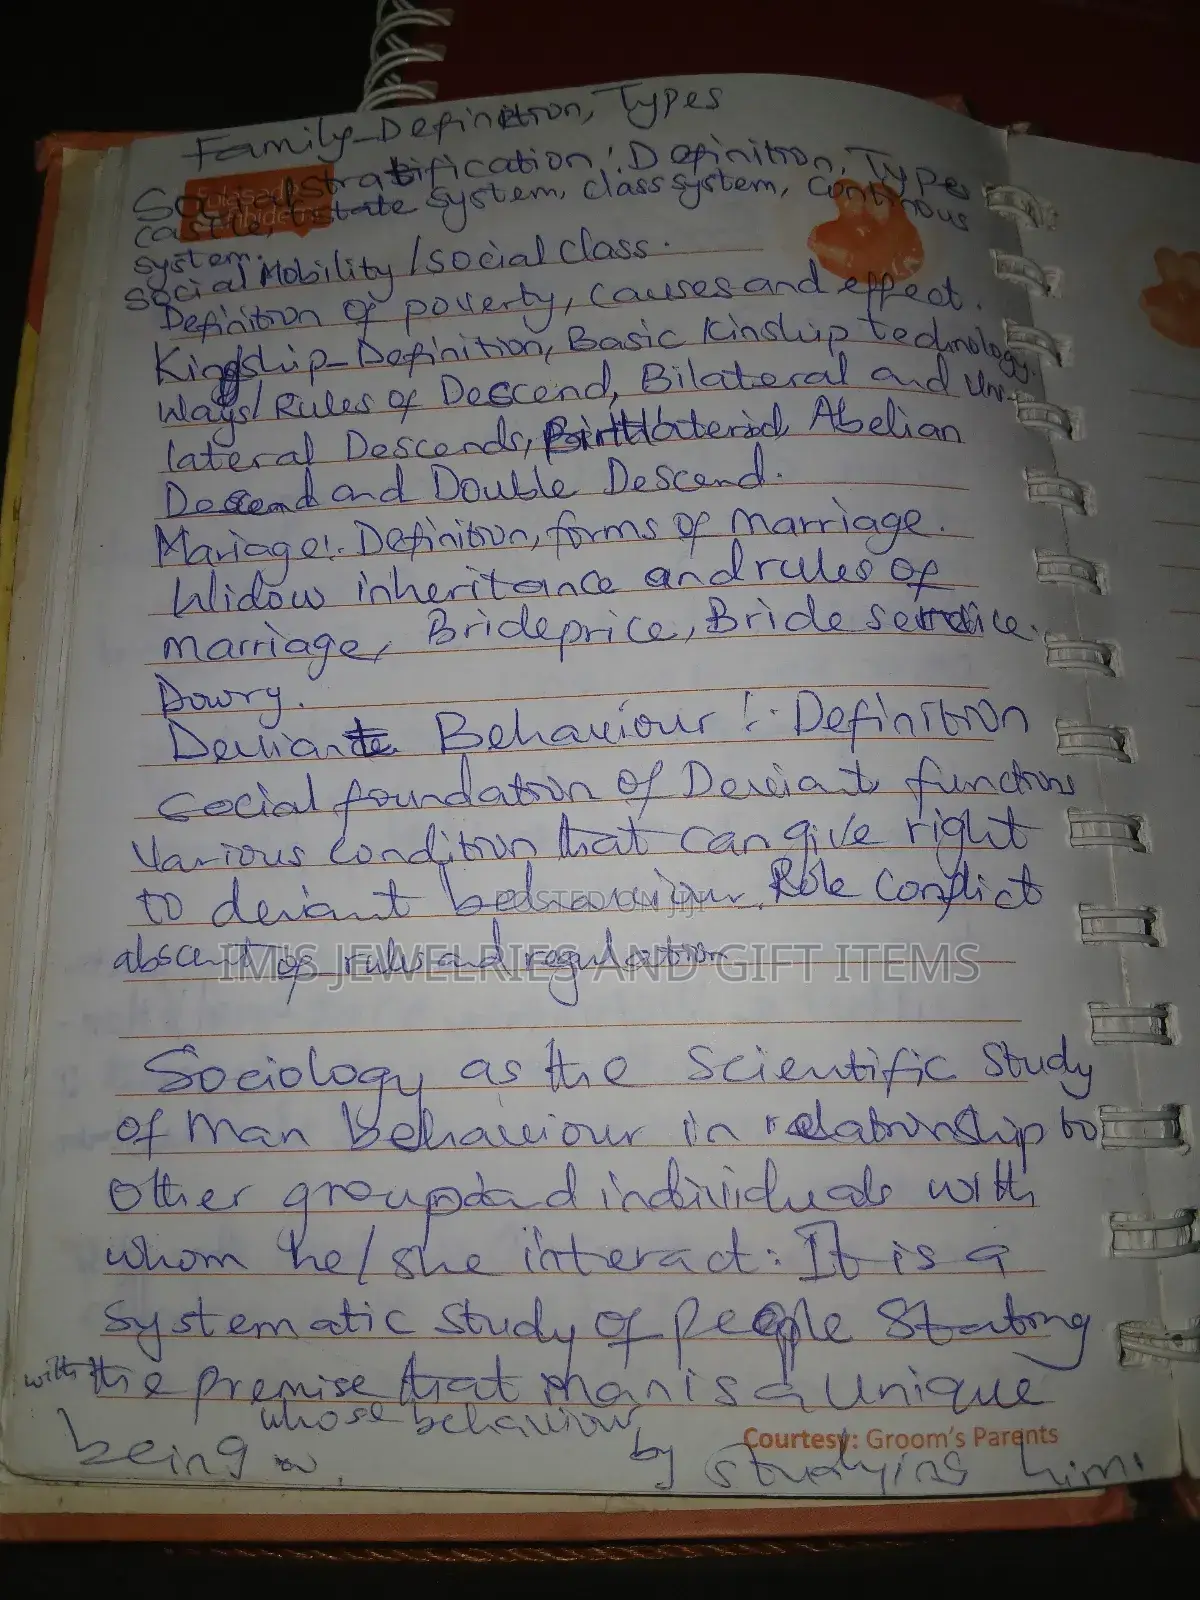 Family - Definition, Types
Social stratification: Definition, Types
castle, Estate system, class system, continous
system.
Social Mobility / social class.
Definition of poverty, causes and effect.
Kingship - Definition, Basic Kinship technology.
Ways/Rules of Descend, Bilateral and Uni-
lateral Descends, Abelian
Descend and Double Descend.
Mariage:. Definition, forms of marriage.
Widow inheritance and rules of
marriage, Brideprice, Bride service.
Dowry.
Deviante Behaviour :. Definition
social foundation of Deviant functions
Various condition that can give right
to deviant behaviour. Role Conflict
abscent of rules and regulation
POSTED ON JIJI
IM'S JEWELRIES AND GIFT ITEMS
Sociology as the scientific study
of man behaviour in relationship to
other group and individuals with
whom he/she interact: It is a
systematic study of people stating
with the premise that man is a unique
being whose behaviour
by studying him.
Courtesy: Groom's Parents